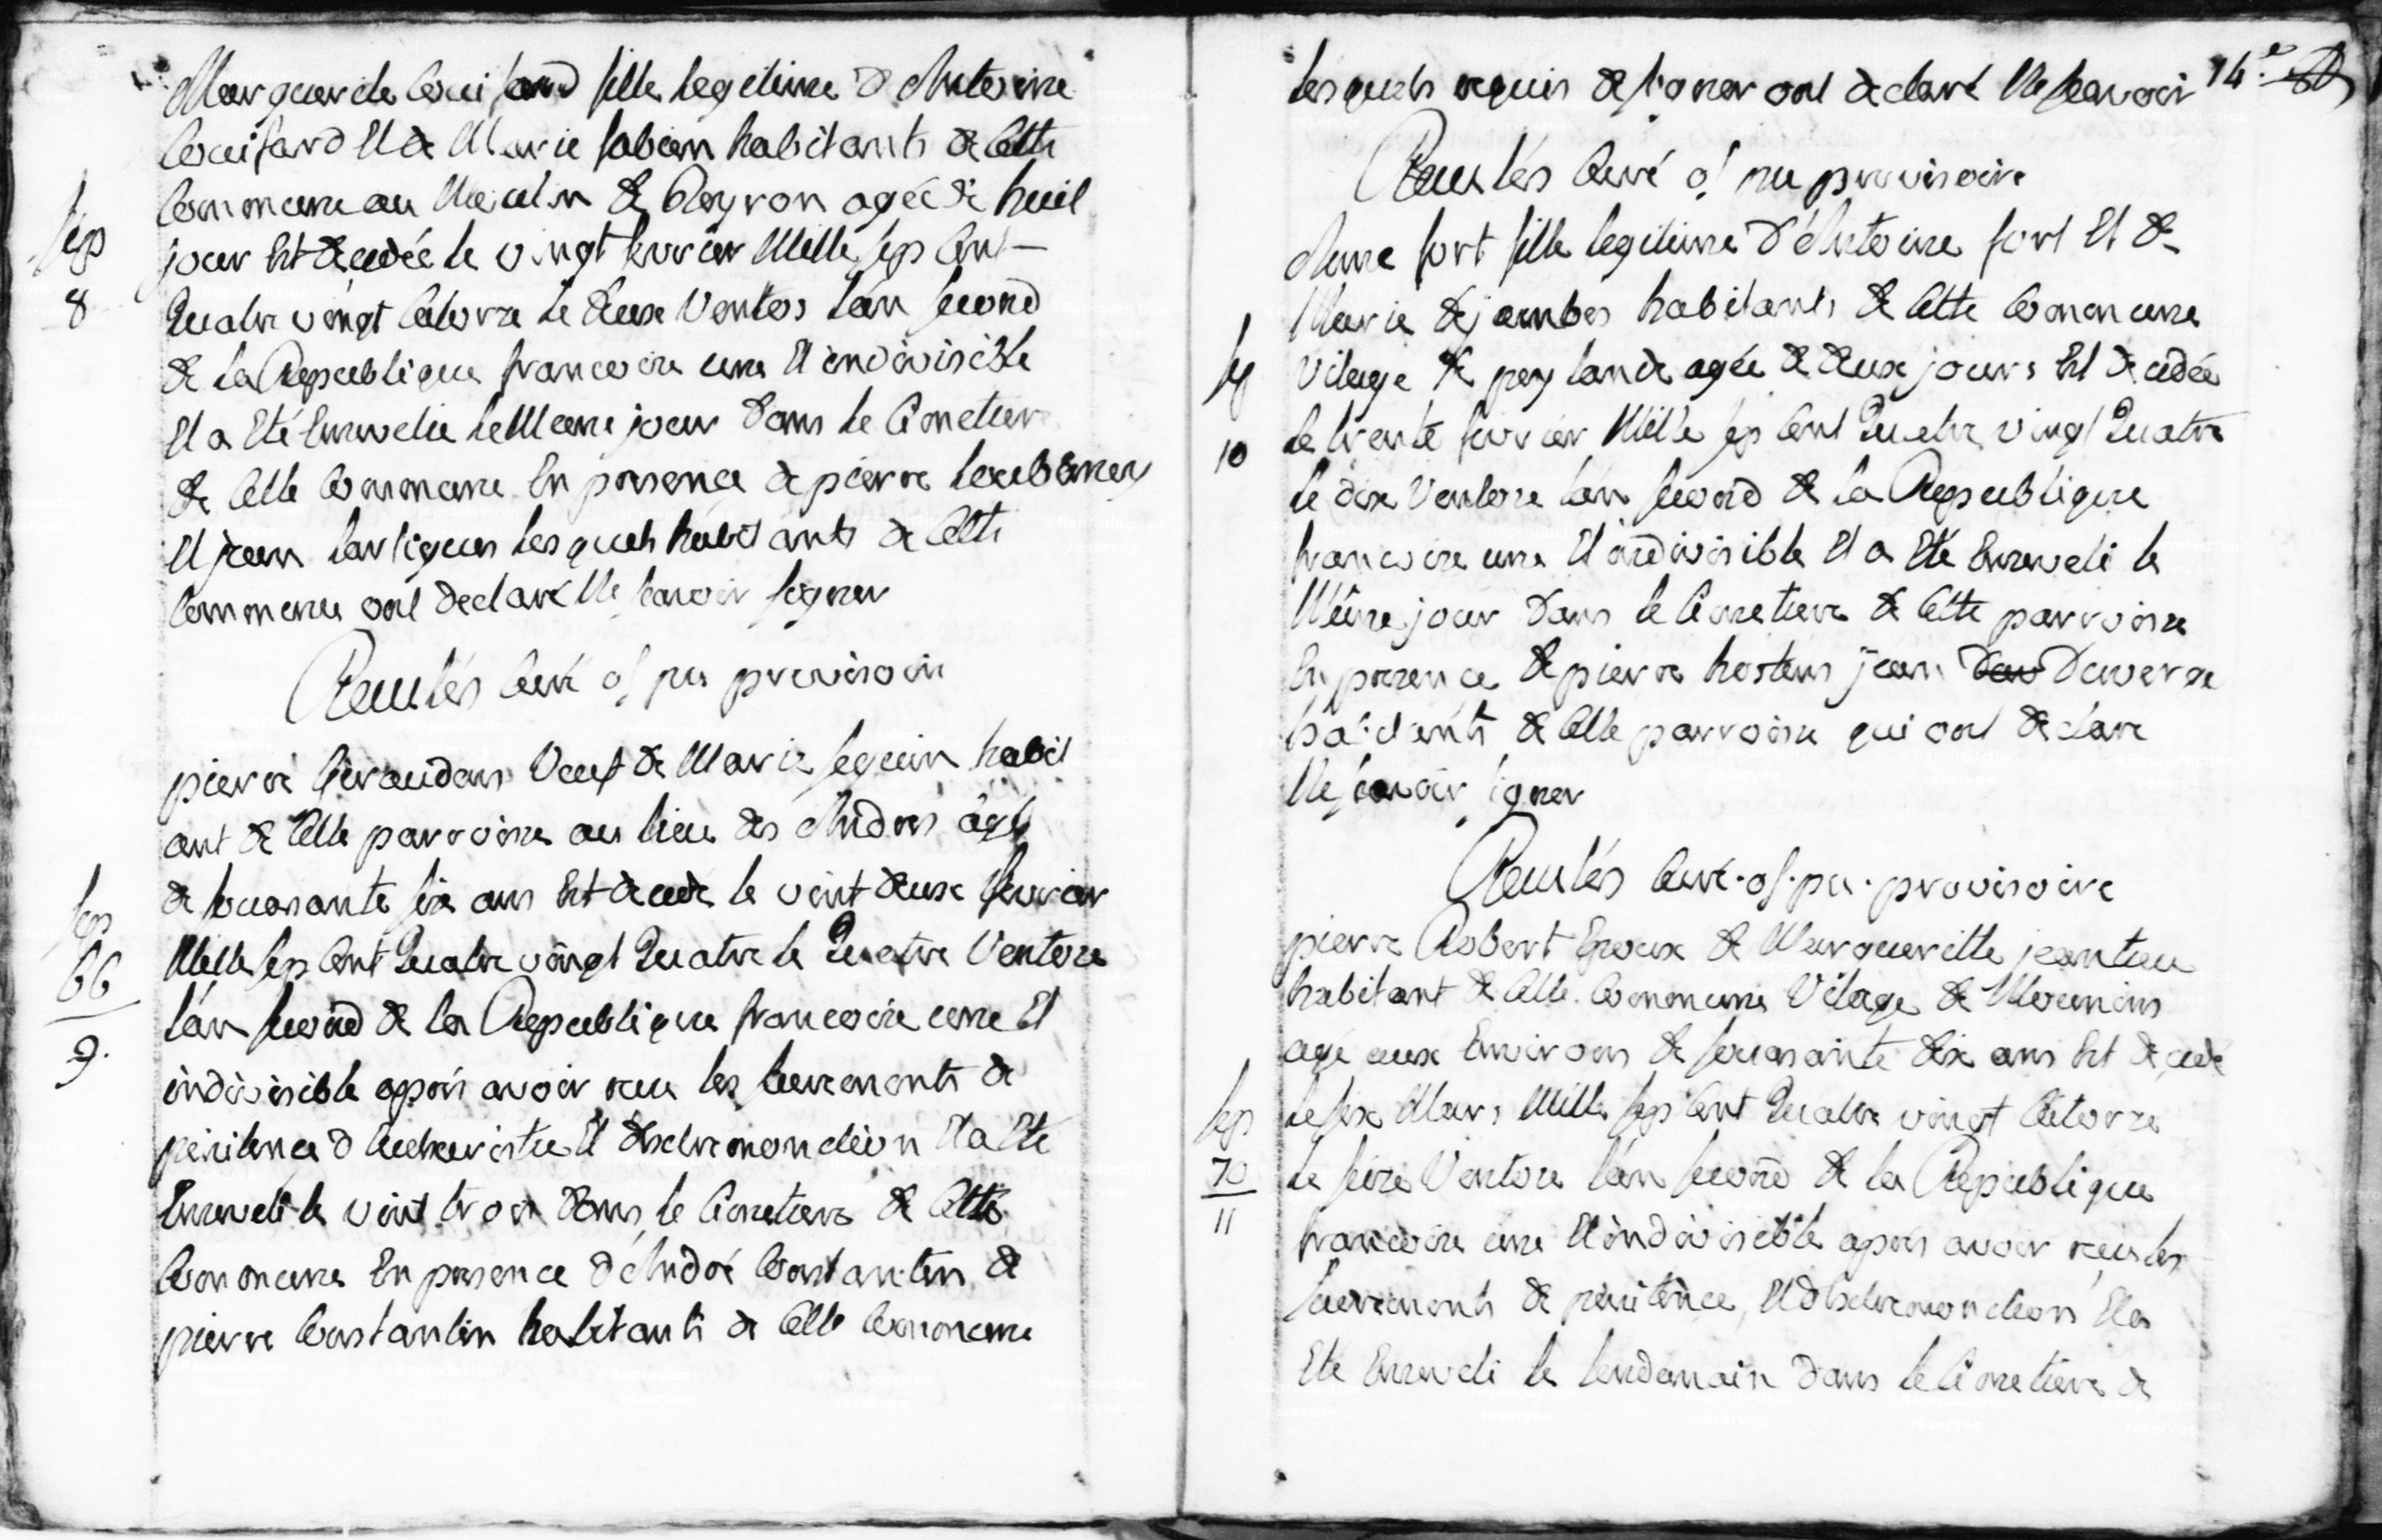 Marguerite Couifard fille legitime d Antoine
Couifard Et de Marie fabien habitants de Cette
Commune au Moulin de Peyron agée de huit
sep
8
jour Est decedée le vingt fevrier Mille sep Cent
Quatre vingt Catorze le deux Ventos l'an second
de la Republique francoise une Et indivisible
Et a Eté Enseveli le Meme jour dans le Cimetiere
de Cette Commune En presence de pierre
Et jean lartigues les quels habitants de Cette
Commune ont declaré Ne savoir signer
Curé of pu provisoir
pierre Geraudeau Veuf de Marie seguin habit
ant de Cette parroisse au lieu des Andrés agé
de souasante six ans Est decedé le vint deux fevrier
sep
66
9.
Mille sep Cent Quatre vingt Quatre le Quatre Ventose
l'an second de la Republique francoise une Et
indivisible aprés avoir recu les sacrements de
penitence d Eucharistie Et dextremonction Et a Eté
Enseveli le vint trois dans le Cimetiere de Cette
Commune En presence d'André Constantin de
pierre Constantin habitants de Cette Commune
14.e
lesquels requis de signer ont declaré Ne scavoir
Curé of pu provisoire
Anne fort fille legitime d'Antoine fort Et de
Marie dejambes habitants de Cette Commune
sep
10
Vilage de peylande agée de deux jours Est decedée
le trente fevrier Mille sep Cent Quatre vingt Quatre
le dix Ventose l'an second de la Republique
francoise une Et indivisible Et a Eté Enseveli le
Même jour dans le Cimetiere de Cette parroisse
En presence de pierre hostens jean Dau Dauverse
habitants de Cette parroisse qui ont declare
Ne savoir signer
Curé of pu provisoire
pierre Robert Epoux de Margueritte jeanteau
habitant de Cette Commune Vilage de
agé aux Environs de souasante dix ans Est decedé
sep
70
11
le six Mars Mille sep Cent Quatre vingt Catorze
le seize Ventose l'an second de la Republique
francoise une Et indivisible aprés avoir recu les
sacrements de penitence, Et dextremonction Et a
Eté Enseveli le lendemain dans le Cimetiere de